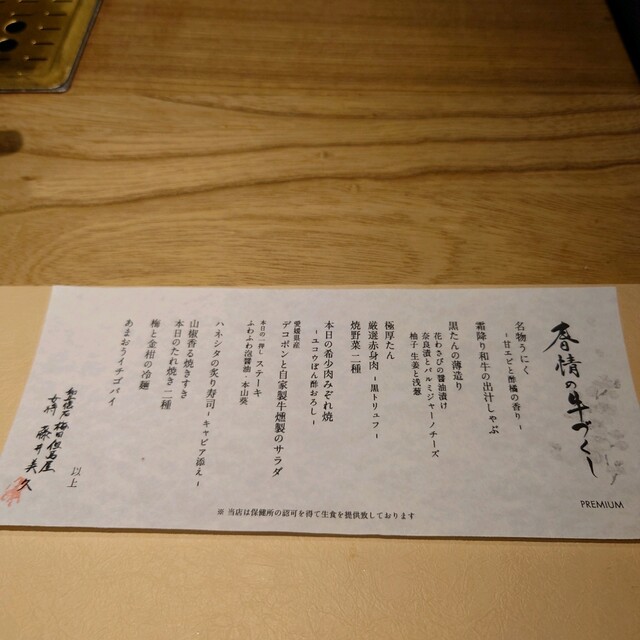 春情の牛づくし
PREMIUM
名物うにく
-甘エビと酢橘の香り-
霜降り和牛の出汁しゃぶ
黒たんの薄造り
花わさびの醤油漬け
奈良漬とパルミジャーノチーズ
柚子 生姜と浅葱
極厚たん
厳選赤身肉 -黒トリュフ-
焼野菜 二種
本日の希少肉みぞれ焼
-ユコウぽん酢おろし-
愛媛県産
デコポンと自家製牛燻製のサラダ
本日の一押し ステーキ
ふわふわ泡醤油・本山葵
ハネシタの炙り寿司 -キャビア添え-
山椒香る焼きすき
本日のたれ焼き二種
梅と金柑の冷麺
あまおうイチゴパイ
以上
梅田但馬屋
女将 藤井美久
※ 当店は保健所の認可を得て生食を提供致しております